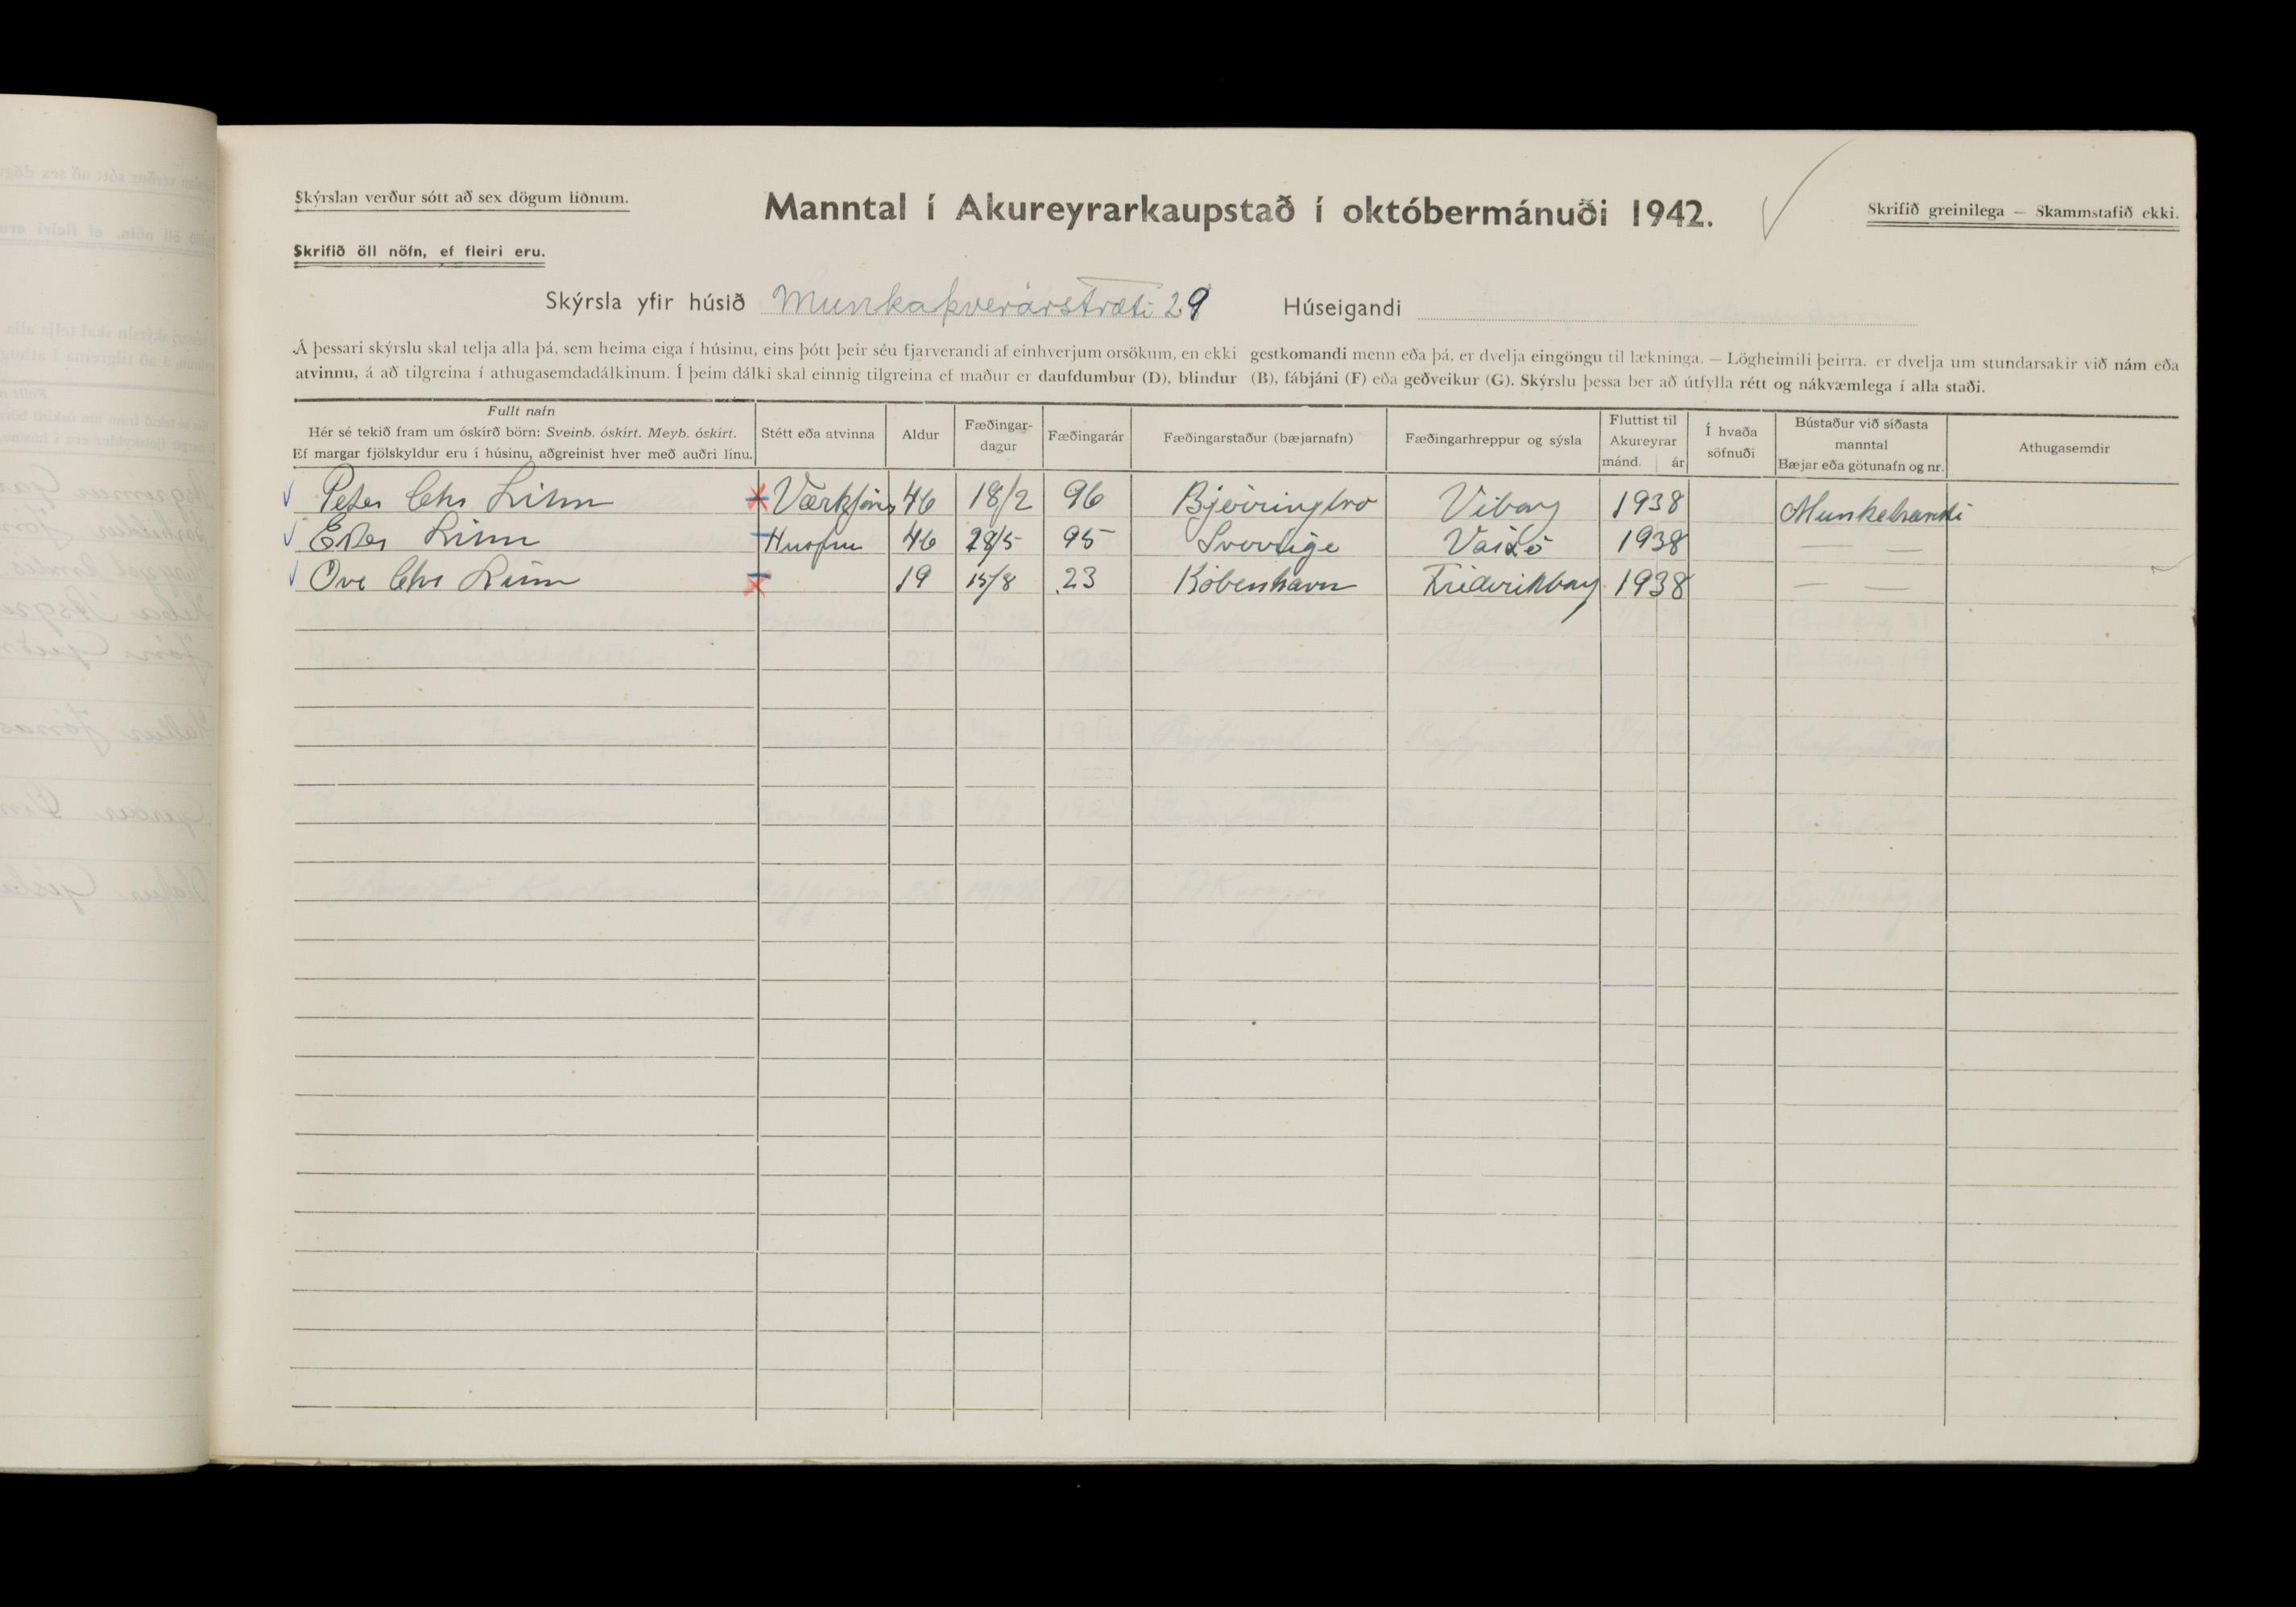 Skýrslan verður sótt að sex dögum liðnum.
Manntal í Akureyrarkaupstað í októbermánuði 1942.
Skrifið greinilega — Skammstafið ekki.
Skrifið öll nöfn, ef fleiri eru.
Skýrsla yfir húsið Munkaþverárstræti 29 Húseigandi
Á þessari skýrslu skal telja alla þá, sem heima eiga í húsinu, eins þótt þeir séu fjarverandi af einhverjum orsökum, en ekki gestkomandi menn eða þá, er dvelja eingöngu til lækninga. — Lögheimili þeirra, er dvelja um stundarsakir við nám eða
atvinnu, á að tilgreina í athugasemdadálkinum. Í þeim dálki skal einnig tilgreina ef maður er daufdumbur (D), blindur (B), fábjáni (F) eða geðveikur (G). Skýrslu þessa ber að útfylla rétt og nákvæmlega í alla staði.
Fullt nafn
Hér sé tekið fram um óskírð börn: Sveinb. óskírt. Meyb. óskírt.
Ef margar fjölskyldur eru í húsinu, aðgreinist hver með auðri línu.
Stétt eða atvinna
Aldur
Fæðingar-
dagur
Fæðingarár
Fæðingarstaður (bæjarnafn)
Fæðingarhreppur og sýsla
Fluttist til
Akureyrar
mánd. ár
Í hvaða
söfnuði
Bústaður við síðasta
manntal
Bæjar eða götunafn og nr.
Athugasemdir
Peter Chr 46 18/2 96 Bjerringbro Viborg 1938
Ester 46 29/5 95 Sverrige 1938 — —
Ove Chr 19 15/8 23 Köbenhavn 1938 — —